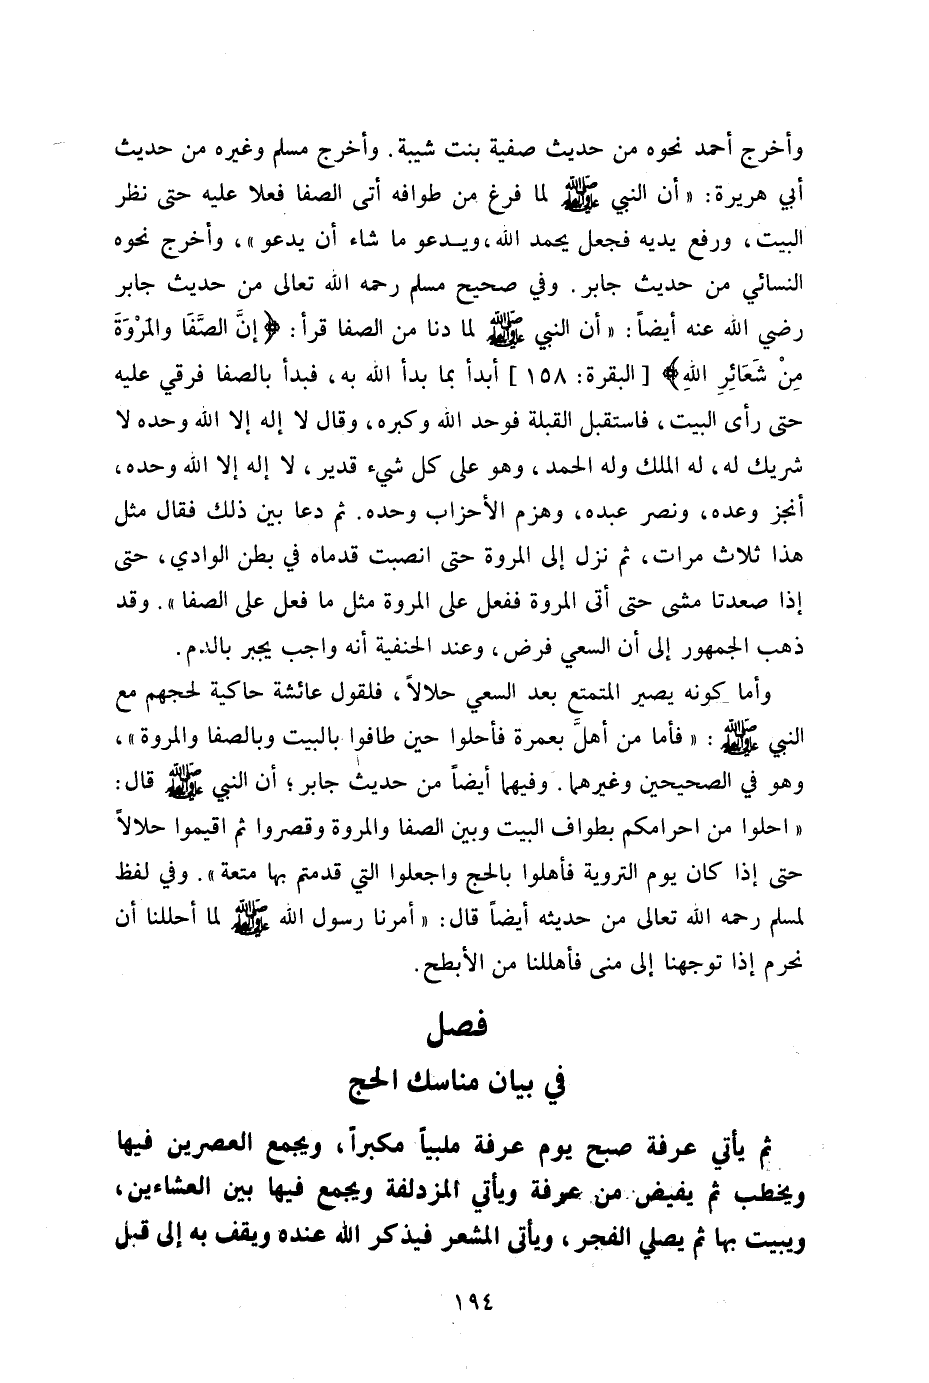 وأخرج أحمد نحوه من حديث صفية بنت شيبة. وأخرج مسلم وغيره من حديث
أبي هريرة: «أن النبي ﷺ لما فرغ من طوافه أتى الصفا فعلا عليه حتى نظر
البيت، ورفع يديه فجعل يحمد الله، ويدعو ما شاء أن يدعو»، وأخرج نحوه
النسائي من حديث جابر. وفي صحيح مسلم رحمه الله تعالى من حديث جابر
رضي الله عنه أيضاً: «أن النبي ﷺ لما دنا من الصفا قرأ: ﴿إنَّ الصَّفَا والمَرْوَةَ
مِنْ شَعَائِرِ اللهِ﴾ [البقرة: ١٥٨] أبدأ بما بدأ الله به، فبدأ بالصفا فرقي عليه
حتى رأى البيت، فاستقبل القبلة فوحد الله وكبره، وقال لا إله إلا الله وحده لا
شريك له، له الملك وله الحمد، وهو على كل شيء قدير، لا إله إلا الله وحده،
أنجز وعده، ونصر عبده، وهزم الأحزاب وحده. ثم دعا بين ذلك فقال مثل
هذا ثلاث مرات، ثم نزل إلى المروة حتى انصبت قدماه في بطن الوادي، حتى
إذا صعدتا مشى حتى أتى المروة ففعل على المروة مثل ما فعل على الصفا». وقد
ذهب الجمهور إلى أن السعي فرض، وعند الحنفية أنه واجب يجبر بالدم.
وأما كونه يصير المتمتع بعد السعي حلالاً، فلقول عائشة حاكية لحجهم مع
النبي ﷺ: «فأما من أهلَّ بعمرة فأحلوا حين طافوا بالبيت وبالصفا والمروة»،
وهو في الصحيحين وغيرهما. وفيهما أيضاً من حديث جابر؛ أن النبي ﷺ قال:
«احلوا من احرامكم بطواف البيت وبين الصفا والمروة وقصروا ثم اقيموا حلالاً
حتى إذا كان يوم التروية فأهلوا بالحج واجعلوا التي قدمتم بها متعة». وفي لفظ
لمسلم رحمه الله تعالى من حديثه أيضاً قال: «أمرنا رسول الله ﷺ لما أحللنا أن
نحرم إذا توجهنا إلى منى فأهللنا من الأبطح.
فصل
في بيان مناسك الحج
ثم يأتي عرفة صبح يوم عرفة ملبياً مكبراً، ويجمع العصرين فيها
ويخطب ثم يفيض من عرفة ويأتي المزدلفة ويجمع فيها بين العشاءين،
ويبيت بها ثم يصلي الفجر، ويأتى المشعر فيذكر الله عنده ويقف به إلى قبل
١٩٤